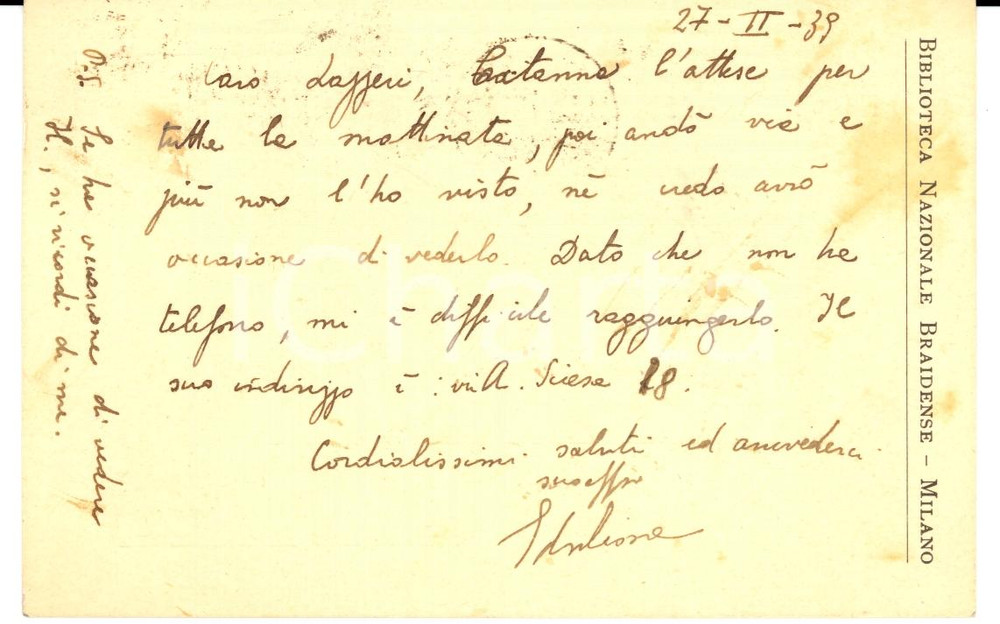 27-II-39
Caro Lazzeri, l'attese per
tutta la mattinata, poi andò via e
più non l'ho visto, nè credo avrò
occasione di vederlo. Dato che non ha
telefono, mi è difficile raggiungerlo. Il
suo indirizzo è: via A. Sciesa 18.
Cordialissimi saluti ed arrivederci
suo aff.mo
P.S. Se ha occasione di vedere
H., si ricordi di me.
BIBLIOTECA NAZIONALE BRAIDENSE – MILANO
iCharta